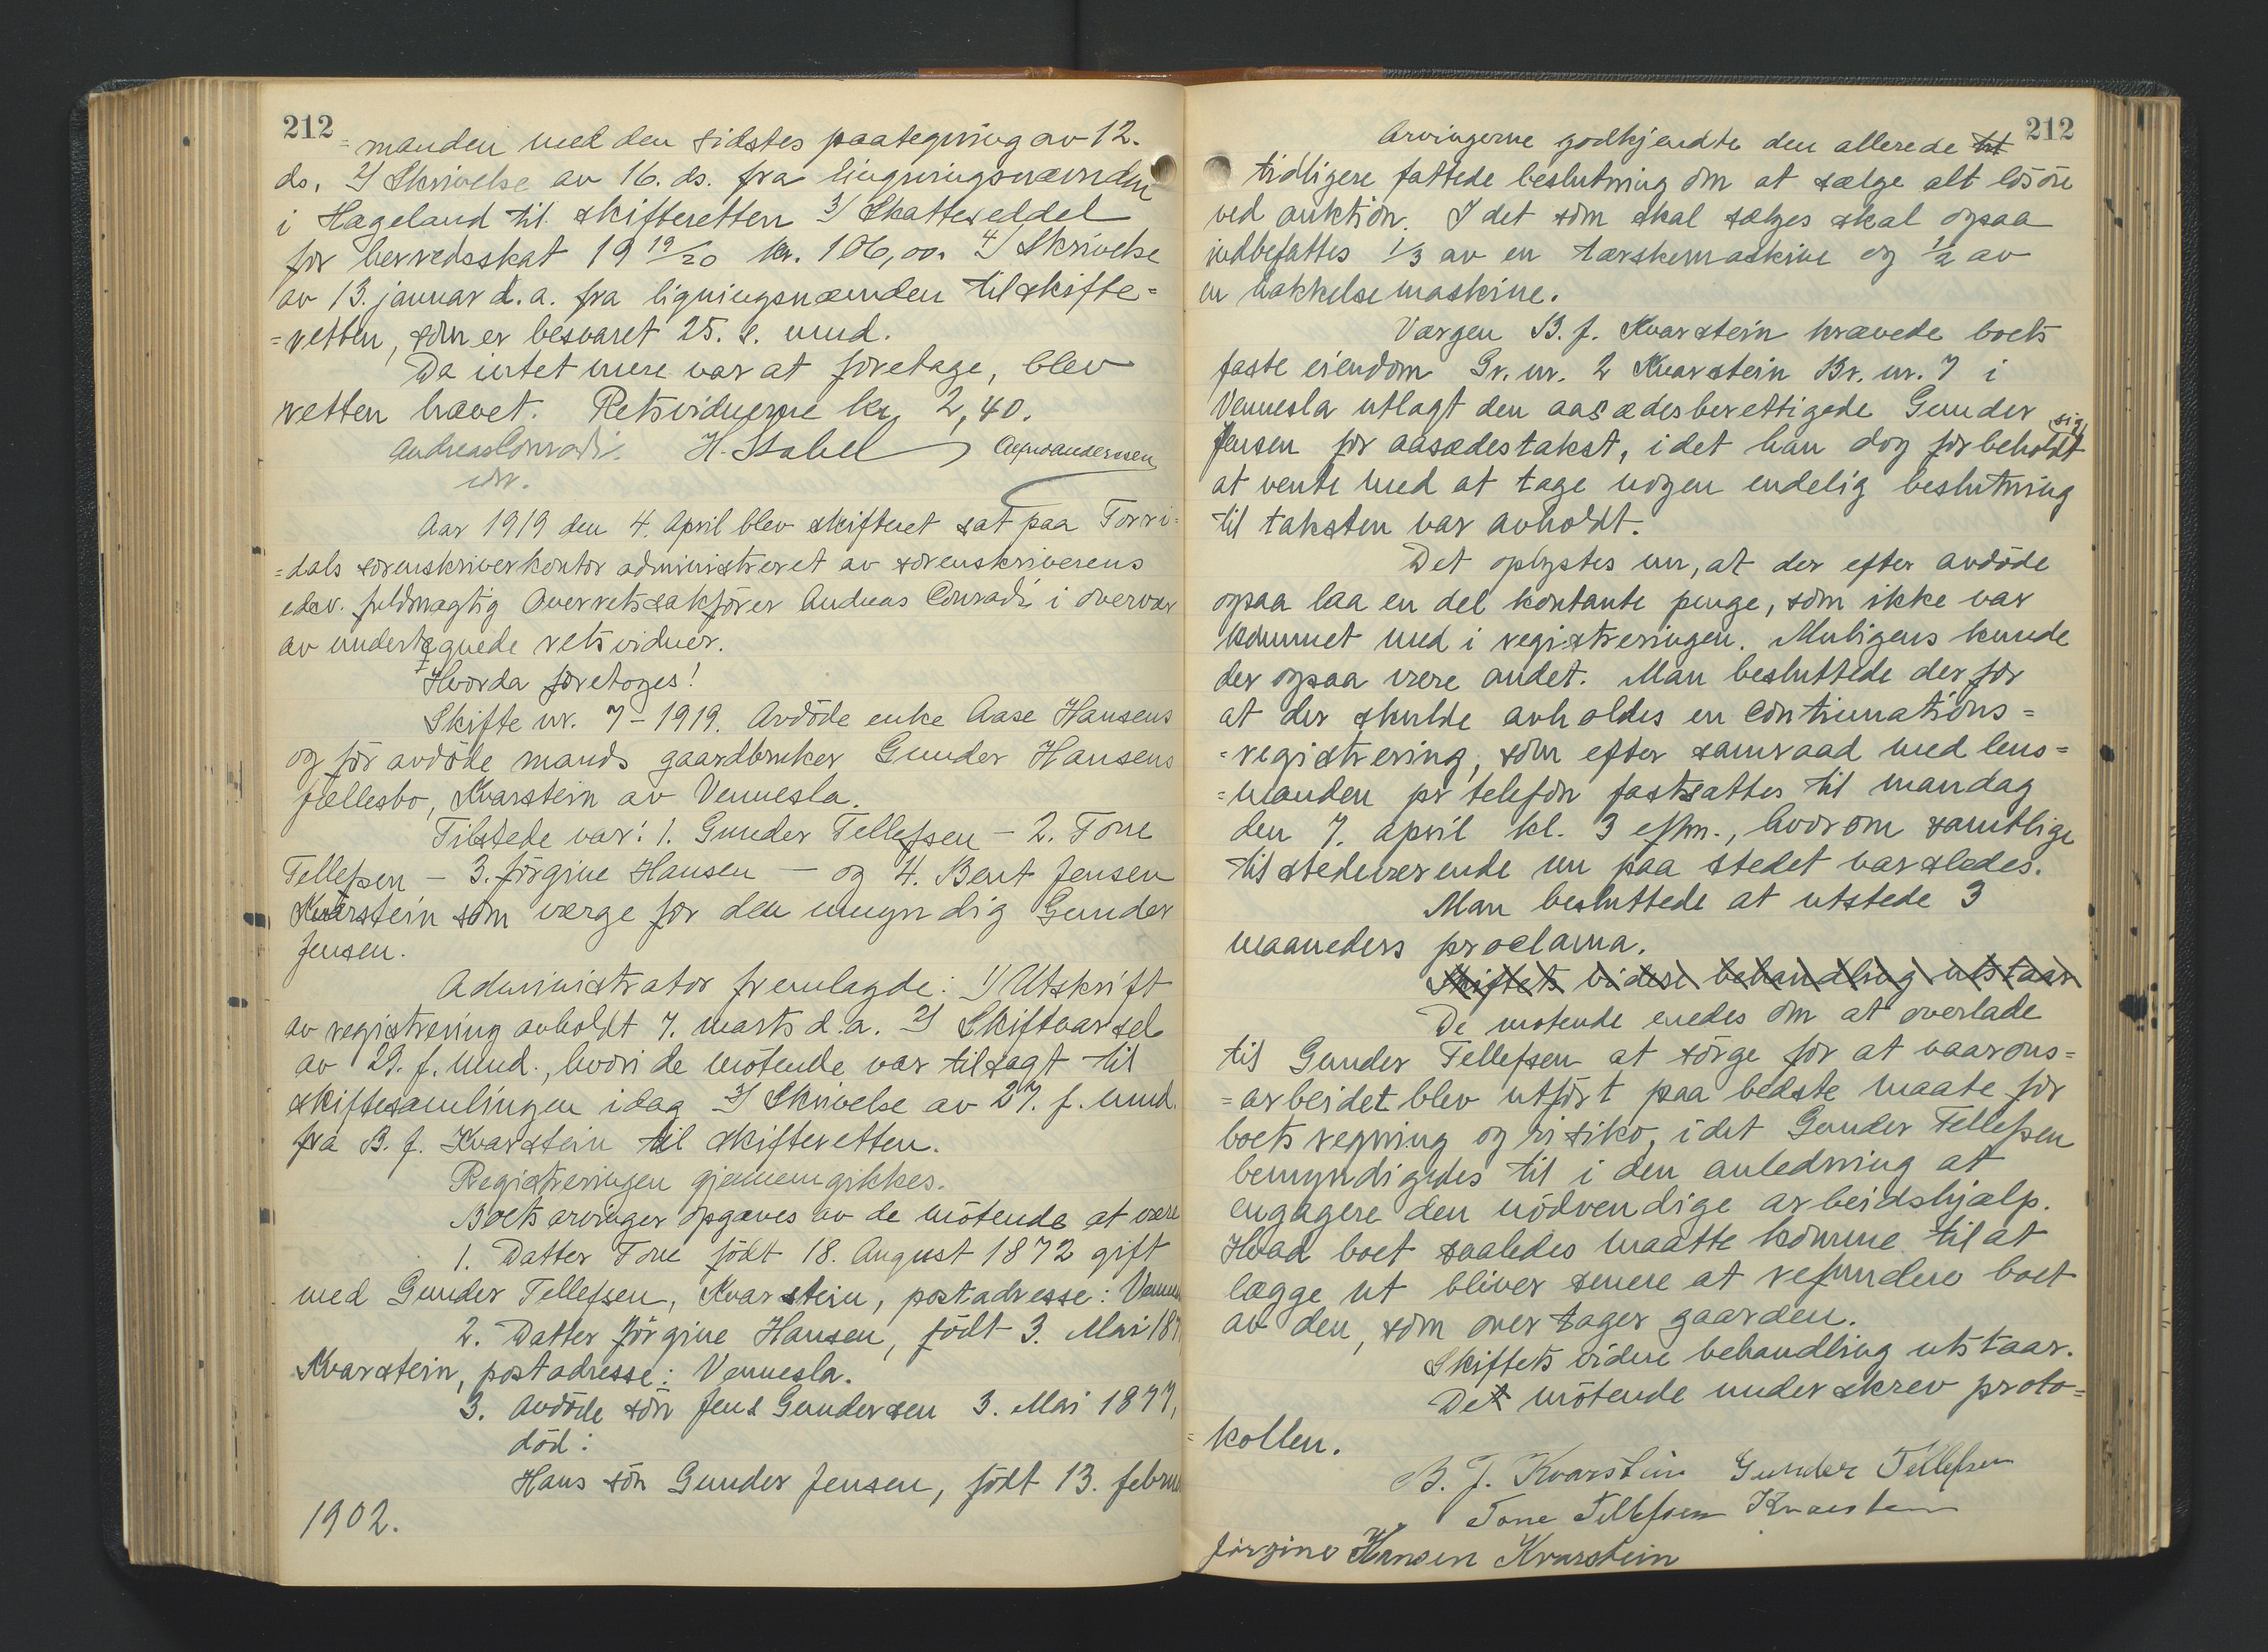 212
=manden med den sidstes paategning av 12.
ds. 2/ Skrivelse av 16. ds. fra lingningsnævnden
i Hægeland til skifteretten 3/ Skatteseddel
for herredsskat 19 19/20 kr. 106,00. 4/ Skrivelse
av 13. januar d.a. fra ligningsnævnden til skifte=
=retten, som er besvaret 25. s. mnd.
Da intet mere var at foretage, blev
retten hævet. Retsvidnerne kr. 2,40.
Andreas Conradi H. Stabel
Aar 1919 den 4. April blev skifteret sat paa Torri=
=dals sorenskriverkontor administreret av sorenskriverens
edsv. fuldmægtig Overretssakfører Andreas Conradi i overvær
av undertegnede retsvidner.
Hvorda foretoges!
Skifte nr. 7-1919. Avdöde enke Aase Hansens
og för avdöde mands gaardbruker Gunder Hansens
fællesbo, Kvarstein av Vennesla.
Tilstede var: 1. Gunder Tellefsen - 2. Tone
Tellefsen - 3. Jörgine Hansen - og 4. Bent Jensen
Kvarstein som værge for den umyndig Gunder
Jensen.
Administrator fremlagde: 1/ Utskrift
av registrering avholdt 7. marts d.a. 2/ Skiftvarsel
av 29. f. mnd., hvori de mötende var tilsagt til
skiftesamlingen idag 3/ Skrivelse av 27. f. mnd.
fra B. J. Kvarstein til skifteretten.
Registreringen gjennemgikkes.
Boets arvinger opgaves av de mötende at være
1. Datter Tone födt 18. August 1872 gift
med Gunder Tellefsen, Kvarstein, postadresse: Vennes
2. Datter Jörgine Hansen, födt 3. Mai 187
Kvarstein, postadresse: Vennesla.
3. Avdöde sön Jens Gundersen 3. Mai 1877,
död:
Hans sön Gunder Jensen, födt 13. februa
1902.
212
Arvingerne godkjendte den allerede tit
tidligere fattede beslutning om at sælge alt lösöre
ved auktion. I det som skal sælges skal ogsaa
indbefattes 1/3 av en tærskemaskine og 1/2 av
en hakkelsemaskine.
Værgen B. J. Kvarstein krævede boets
faste eiendom Gr. nr. 2 Kvarstein Br. nr. 7 i
Vennesla utlagt den aasædesberettigede Gunder
Jensen for aasædestakst, idet han dog forbeholdt sig
at vente med at tage nogen endelig beslutning
til taksten var avholdt.
Det oplystes nu, at der efter avdöde
ogsaa laa en del kontante penge, som ikke var
kommet med i registreringen. Muligens kunde
der ogsaa være andet. Man besluttede derfor
at der skulde avholdes en Continuations=
=registrering, som efter samraad med lens=
=manden pr telefon fastsattes til mandag
den 7. april kl. 3 eftm., hvorom samtlige
tilstedeværende nu paa stedet varsledes.
Man besluttede at utstede 3
maaneders proclama.
Skiftets videre behandling utstaar
De mötende enedes om at overlade
til Gunder Tellefsen at sörge for at vaarons=
=arbeidet blev utfört paa bedste maate for
boets regning og risiko, idet Gunder Tellefsen
bemyndigedes til i den anledning at
engagere den nödvendige arbeidshjælp.
Hvad boet saaledes maatte komme til at
lægge ut bliver senere at refundere boet
av den, som overtager gaarden.
Skiftets videre behandling utstaar.
De mötende underskrev proto=
=kollen.
B. J. Kvarstein Gunder Tellefsen
Tone Tellefsen Kvarstein
Jörgine Hansen Kvarstein